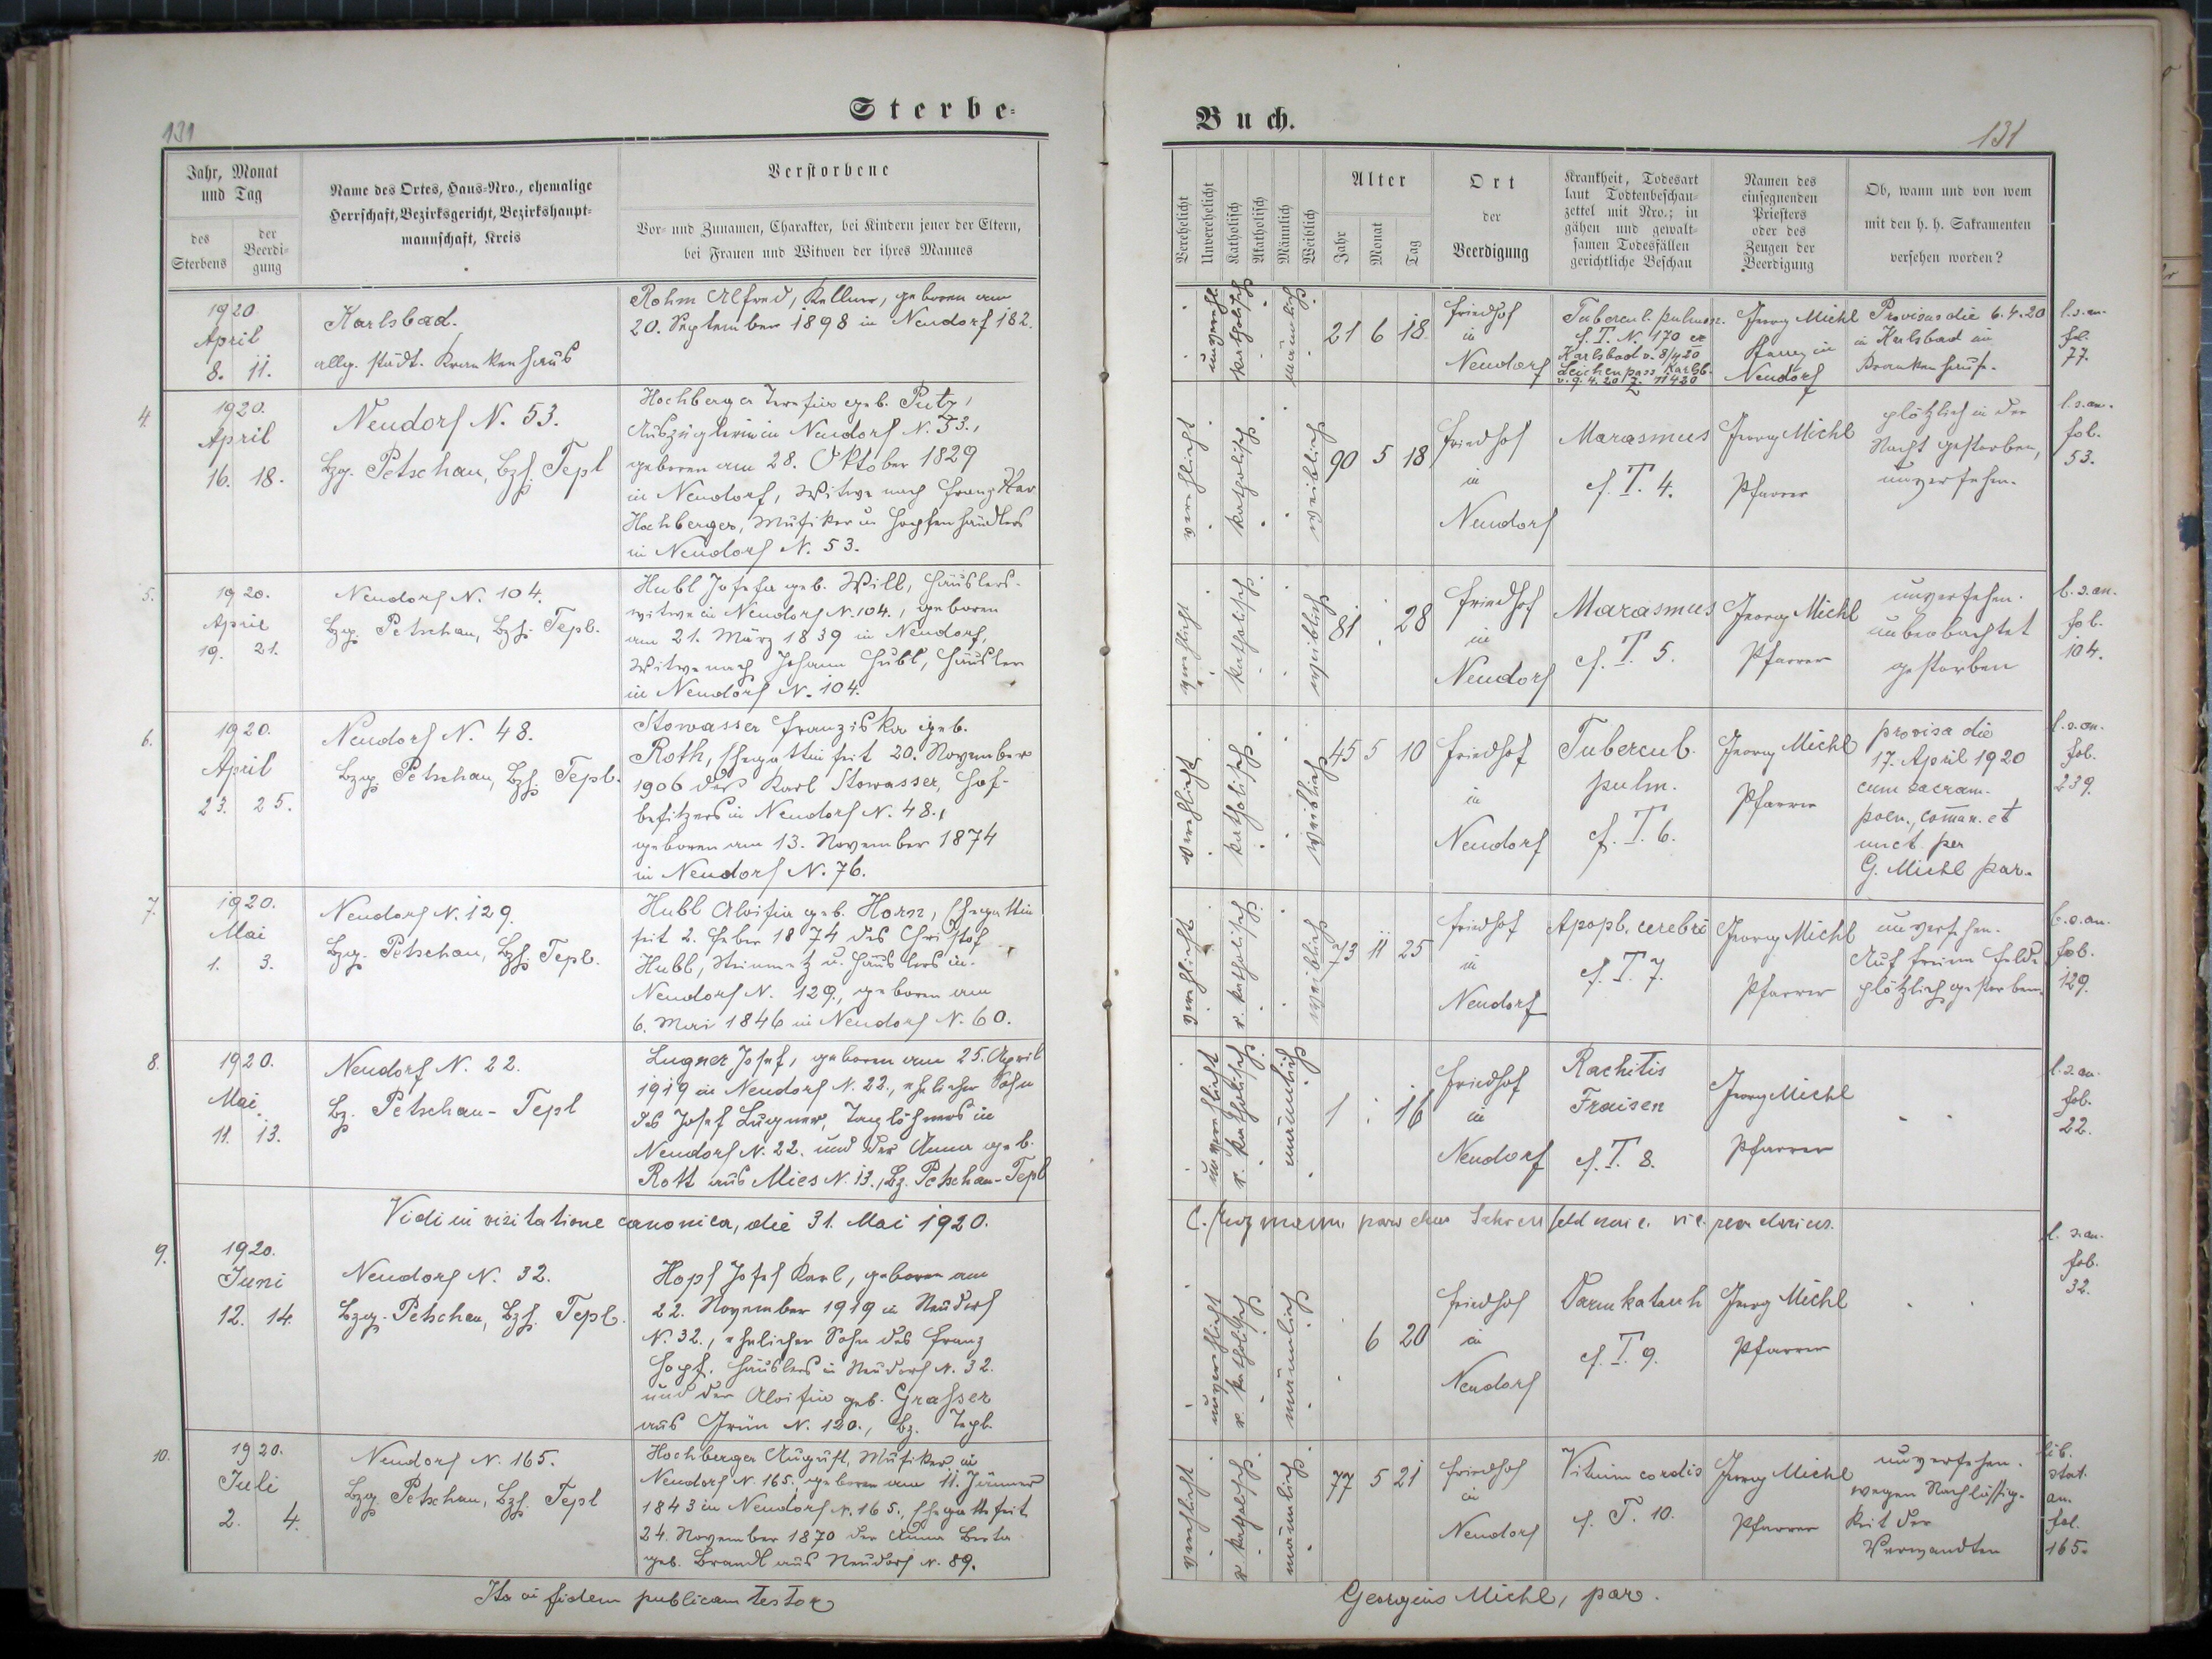 Sterbe-
131
Jahr, Monat
und Tag
des
Sterbens
der
Beerdi-
gung
Name des Ortes, Haus-Nro., ehemalige
Herrschaft, Bezirksgericht, Bezirkshaupt-
mannschaft, Kreis
Verstorbene
Vor- und Zunamen, Charakter, bei Kindern jener der Eltern,
bei Frauen und Witwen der ihres Mannes
1920
April
8. 11.
Karlsbad.
allg. städt. Krankenhaus
Rohm Alfred, Kellner, geboren am
20. September 1898 in Neudorf 182.
4.
1920.
April
16. 18.
Neudorf N. 53.
Bzg. Petschau, Bzh. Tepl
Hochberger Terefia geb. Putz,
Auszüglerin in Neudorf N. 53.,
geboren am 28. Oktober 1829
in Neudorf, Witwe nach Franz
Hochberger, Musiker u. Hopfenhändlers
in Neudorf N. 53.
5.
1920.
April
19. 21.
Neudorf N. 104.
Bzg. Petschau, Bzh. Tepl.
Hubl Josefa geb. Will, Häuslers-
witwe in Neudorf N. 104., geboren
am 21. März 1839 in Neudorf,
Witwe nach Johann Hubl, Häusler
in Neudorf N. 104.
6.
1920.
April
23. 25.
Neudorf N. 48.
Bzg. Petschau, Bzh. Tepl.
Stowasser Franziska geb.
Roth, Ehegattin seit 20. November
1906 des Karl Stowasser, Hof-
besitzers in Neudorf N. 48.,
geboren am 13. November 1874
in Neudorf N. 76.
7.
1920.
Mai
1. 3.
Neudorf N. 129.
Bzg. Petschau, Bzh. Tepl.
Hubl Aloisia geb. Horn, Ehegattin
seit 2. Feber 1874 des Christof
Hubl, Steinmetz u. Häuslers in
Neudorf N. 129., geboren am
6. Mai 1846 in Neudorf N. 60.
8.
1920.
Mai
11. 13.
Neudorf N. 22.
Bz. Petschau-Tepl
Lugner Josef, geboren am 25. April
1919 in Neudorf N. 22., ehelicher Sohn
des Josef Lugner, Taglöhners in
Neudorf N. 22. und der Anna geb.
Rott aus Mies N. 13., Bz. Petschau-Tepl
Vidi in visitatione canonica, die 31. Mai 1920.
9.
1920.
Juni
12. 14.
Neudorf N. 32.
Bzg. Petschau, Bzh. Tepl.
Hopf Josef Karl, geboren am
22. November 1919 in Neudorf
N. 32., ehelicher Sohn des Franz
Hopf, Häuslers in Neudorf N. 32.
und der Aloisia geb. Grasser
aus Grün N. 120., Bz. Tepl.
10.
1920.
Juli
2. 4.
Neudorf N. 165.
Bzg. Petschau, Bzh. Tepl
Hochberger August, Musiker in
Neudorf N. 165., geboren am 11. Jänner
1843 in Neudorf N. 165., Ehegatte seit
24. November 1870 der Anna Berta
geb. Brandl aus Neudorf N. 89.
Ita in fidem publicam testor
Buch.
131
Verehelicht
Unverehelicht
Katholisch
Akatholisch
Männlich
Weiblich
Alter
Jahr
Monat
Tag
Ort
der
Beerdigung
Krankheit, Todesart
laut Todtenbeschau-
zettel mit Nro.; in
gähen und gewalt-
samen Todesfällen
gerichtliche Beschau
Namen des
einsegnenden
Priesters
oder des
Zeugen der
Beerdigung
Ob, wann und von wem
mit den h. h. Sakramenten
versehen worden?
katholisch
männlich
21 6 18
Friedhof
in
Neudorf
Tubercul. pulmon.
f. T. N. 170 ex
Karlsbad v. 8/4 20
Leichenpass Karlsb.
v. 9. 4. 20
Georg Michl
Pfarrer in
Neudorf
Provisus die 6. 4. 20
in Karlsbad im
Krankenhause.
l. s. an.
fol.
77.
verehlicht
katholisch
weiblich
90 5 18
Friedhof
in
Neudorf
Marasmus
f. T. 4.
Georg Michl
Pfarrer
plötzlich in der
Nacht gestorben,
unversehen.
l. s. an.
fol.
53.
verehlicht
katholisch
weiblich
81 . 28
Friedhof
in
Neudorf
Marasmus
f. T. 5.
Georg Michl
Pfarrer
unversehen.
unbeobachtet
gestorben
l. s. an.
fol.
104.
verehlicht
katholisch
weiblich
45 5 10
Friedhof
in
Neudorf
Tubercul.
pulm.
f. T. 6.
Georg Michl
Pfarrer
provisa die
17. April 1920
cum sacram.
poen., comun. et
unct. per
G. Michl par.
l. s. an.
fol.
239.
verehlicht
r. katholisch
weiblich
73 11 25
Friedhof
in
Neudorf
Apopl. cerebri
f. T. 7.
Georg Michl
Pfarrer
unversehen.
Auf freiem Felde
plötzlich gestorben.
l. s. an.
fol.
129.
unverehlicht
r. katholisch
männlich
1 . 16
Friedhof
in
Neudorf
Rachitis
Fraisen
f. T. 8.
Georg Michl
Pfarrer
l. s. an.
fol.
22.
unverehlicht
r. katholisch
männlich
6 20
Friedhof
in
Neudorf
Darmkatarrh
f. T. 9.
Georg Michl
Pfarrer
l. s. an.
fol.
32.
verehlicht
r. katholisch
männlich
77 5 21
Friedhof
in
Neudorf
Vitium cordis
f. T. 10.
Georg Michl
Pfarrer
unversehen.
wegen Nachlässig-
keit der
Verwandten
lib.
stat.
an.
fol.
165.
Georgius Michl, par.